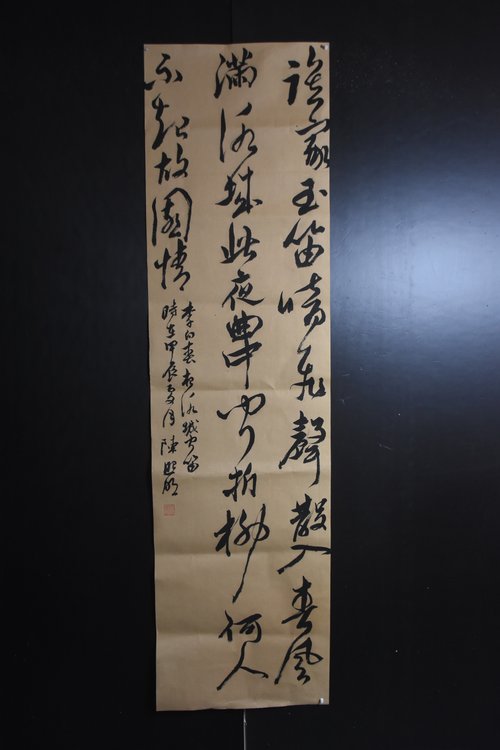 誰家玉笛暗飛聲散入春風
滿洛城此夜曲中聞折柳何人
不起故園情
李白春夜洛城聞笛
時在甲辰夏月陳